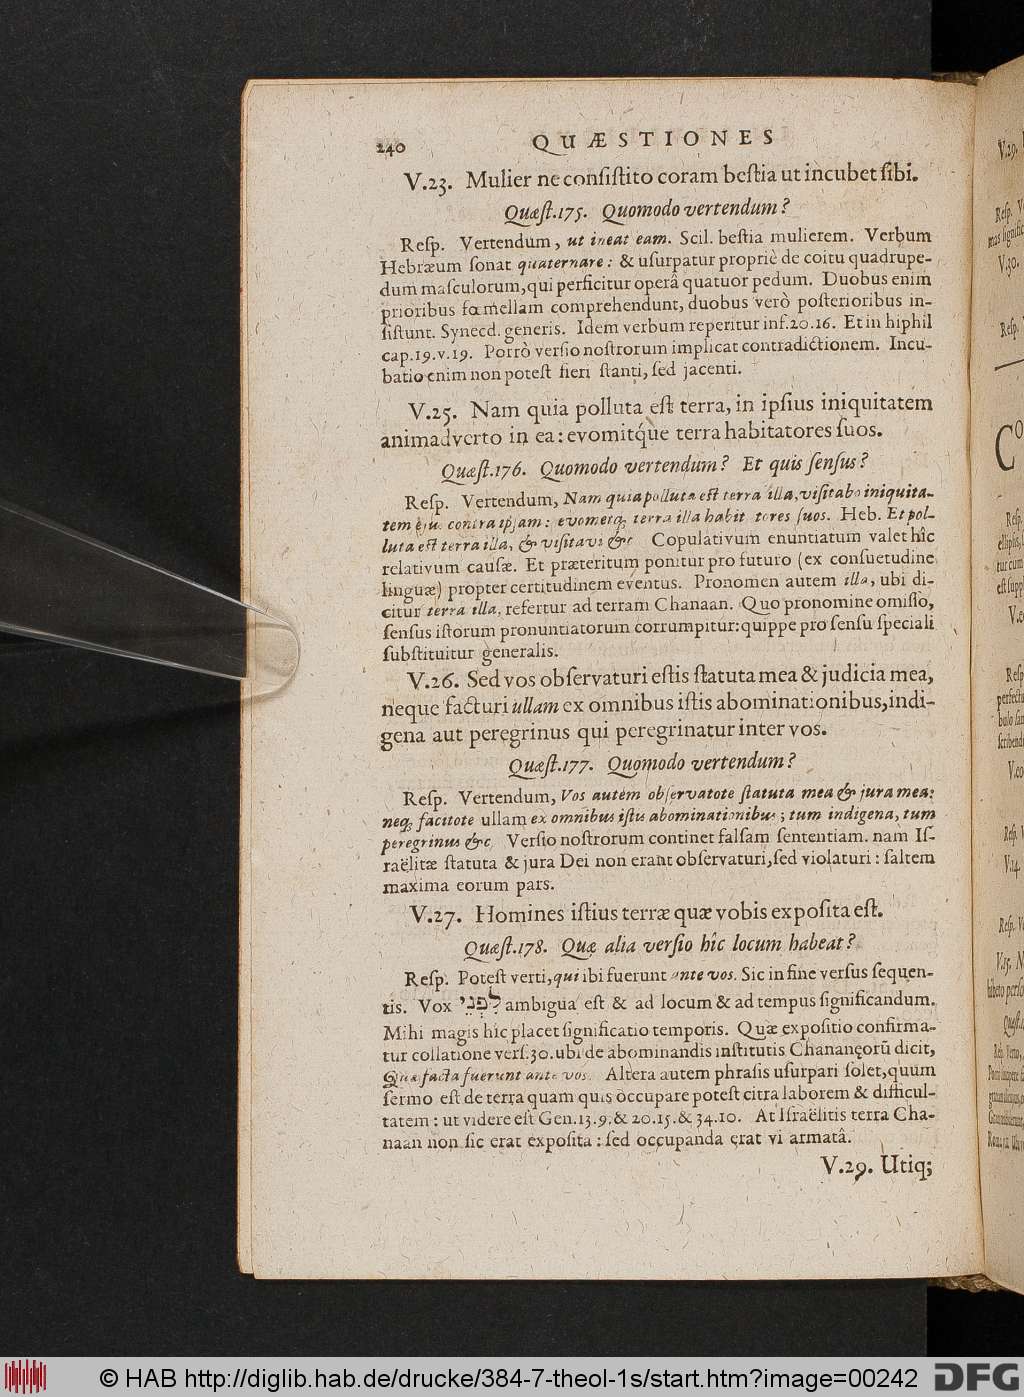 240 QUÆSTIONES
V.23. Mulier ne consistito coram bestia ut incubet sibi.
Quæst.175. Quomodo vertendum?
Resp. Vertendum, ut ineat eam. Scil. bestia mulierem. Verbum
Hebræum sonat quaternare: & usurpatur propriè de coitu quadrupe-
dum masculorum, qui perficitur operâ quatuor pedum. Duobus enim
prioribus fœmellam comprehendunt, duobus verò posterioribus in-
sistunt. Synecd. generis. Idem verbum reperitur inf.20.16. Et in hiphil
cap.19.v.19. Porrò versio nostrorum implicat contradictionem. Incu-
batio enim non potest fieri stanti, sed jacenti.
V.25. Nam quia polluta est terra, in ipsius iniquitatem
animadverto in ea: evomitq́ue terra habitatores suos.
Quæst.176. Quomodo vertendum? Et quis sensus?
Resp. Vertendum, Nam quia polluta est terra illa, visitabo iniquita-
tem ejus contra ipsam: evometq; terra illa habitatores suos. Heb. Et pol-
luta est terra illa, & visitavi &c Copulativum enuntiatum valet hîc
relativum causæ. Et præteritum ponitur pro futuro (ex consuetudine
linguæ) propter certitudinem eventus. Pronomen autem illa, ubi di-
citur terra illa, refertur ad terram Chanaan. Quo pronomine omisso,
sensus istorum pronuntiatorum corrumpitur: quippe pro sensu speciali
substituitur generalis.
V.26. Sed vos observaturi estis statuta mea & judicia mea,
neque facturi ullam ex omnibus istis abominationibus, indi-
gena aut peregrinus qui peregrinatur inter vos.
Quæst.177. Quomodo vertendum?
Resp. Vertendum, Vos autem observatote statuta mea & jura mea:
neq; facitote ullam ex omnibus istis abominationibus; tum indigena, tum
peregrinus &c. Versio nostrorum continet falsam sententiam. nam Is-
raëlitæ statuta & jura Dei non erant observaturi, sed violaturi: saltem
maxima eorum pars.
V.27. Homines istius terræ quæ vobis exposita est.
Quæst.178. Quæ alia versio hîc locum habeat?
Resp. Potest verti, qui ibi fuerunt ante vos. Sic in fine versus sequen-
tis. Vox לִפְנֵי ambigua est & ad locum & ad tempus significandum.
Mihi magis hîc placet significatio temporis. Quæ expositio confirma-
tur collatione vers.30. ubi de abominandis institutis Chananęorũ dicit,
Quæ facta fuerunt ante vos. Altera autem phrasis usurpari solet, quum
sermo est de terra quam quis occupare potest citra laborem & difficul-
tatem: ut videre est Gen.13.9. & 20.15. & 34.10. At Israëlitis terra Cha-
naan non sic erat exposita: sed occupanda erat vi armatâ.
V.29. Utiq;
© HAB http://diglib.hab.de/drucke/384-7-theol-1s/start.htm?image=00242
DFG